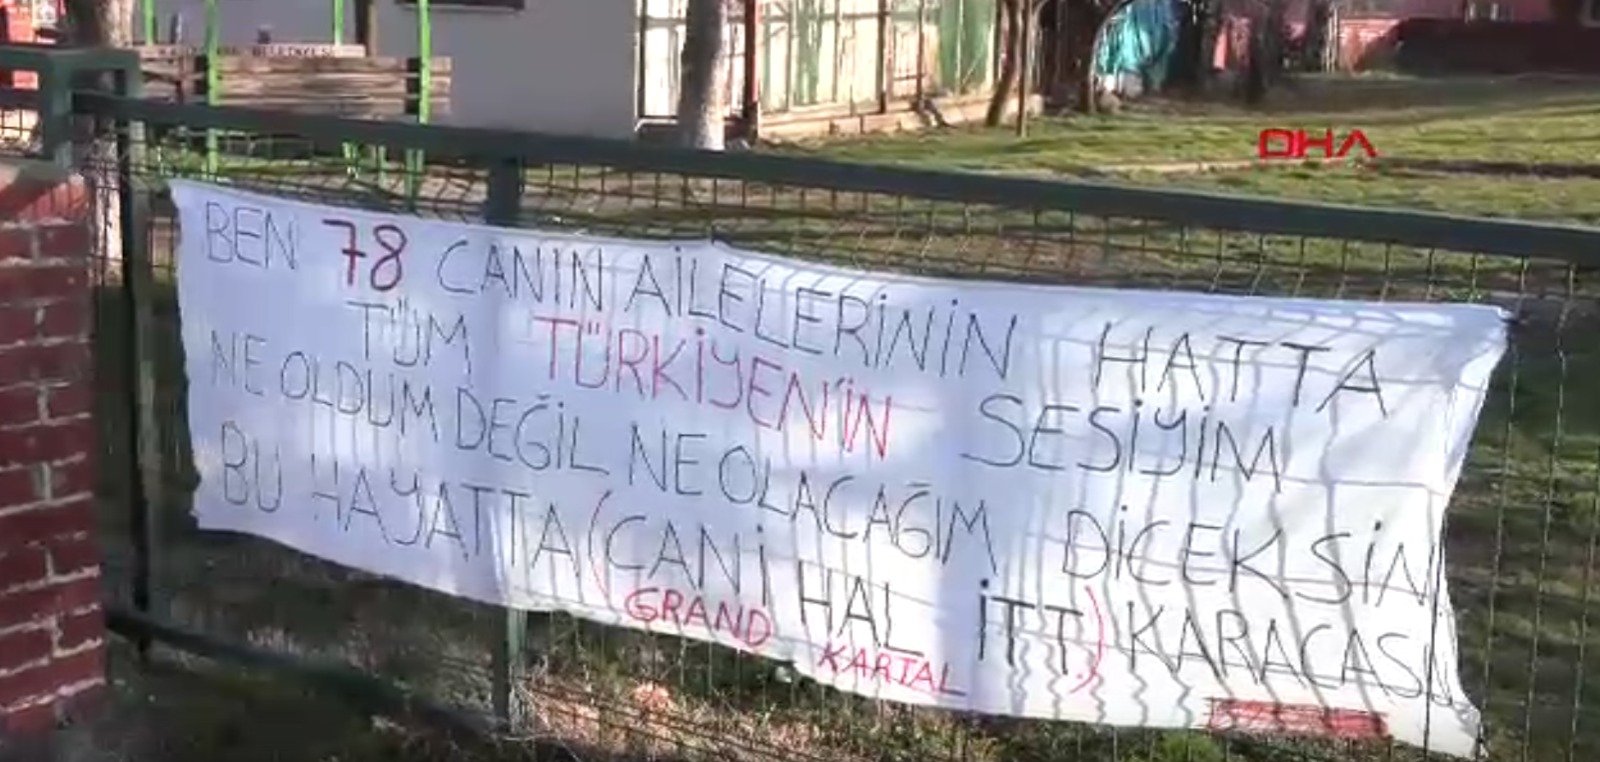 DHA
BEN 78 CANIN AİLELERİNİN HATTA
TÜM TÜRKİYEN'İN SESİYİM
NE OLDUM DEĞİL NE OLACAĞIM DİCEKSİN
BU HAYATTA (CANİ HAL İTT.) KARACASU
GRAND KARTAL